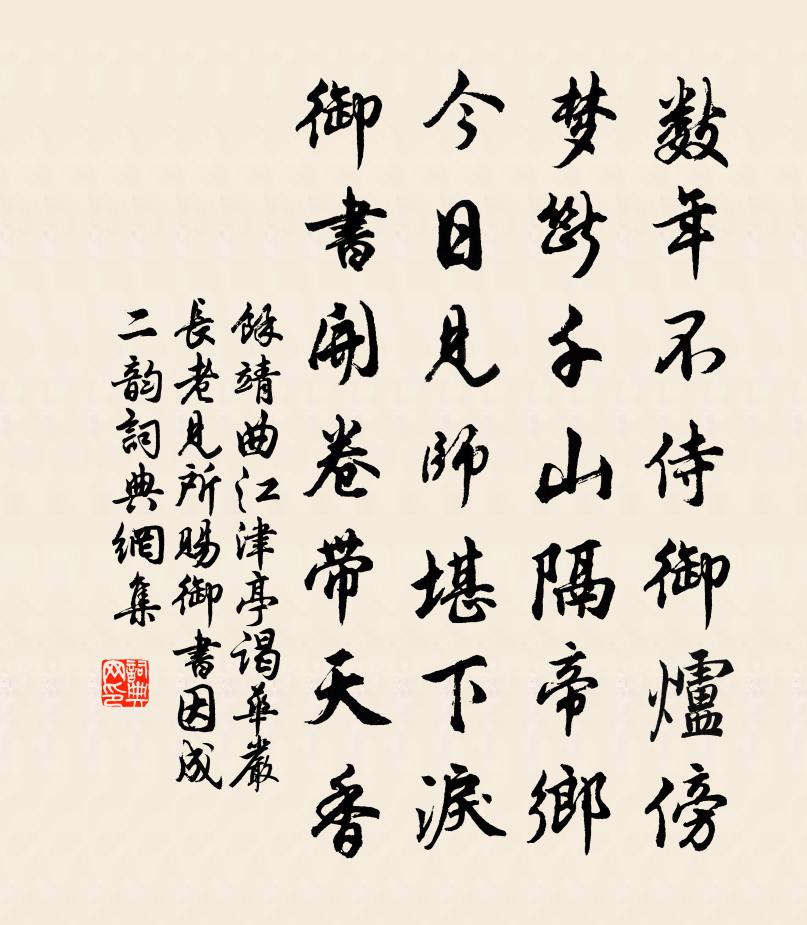 数年不侍御爐傍
梦斷千山隔帝鄉
今日見師堪下淚
御書開卷带天香
餘靖曲江津亭謁華嚴
長老見所賜御書因成
二韵詞典網集
詞典网印